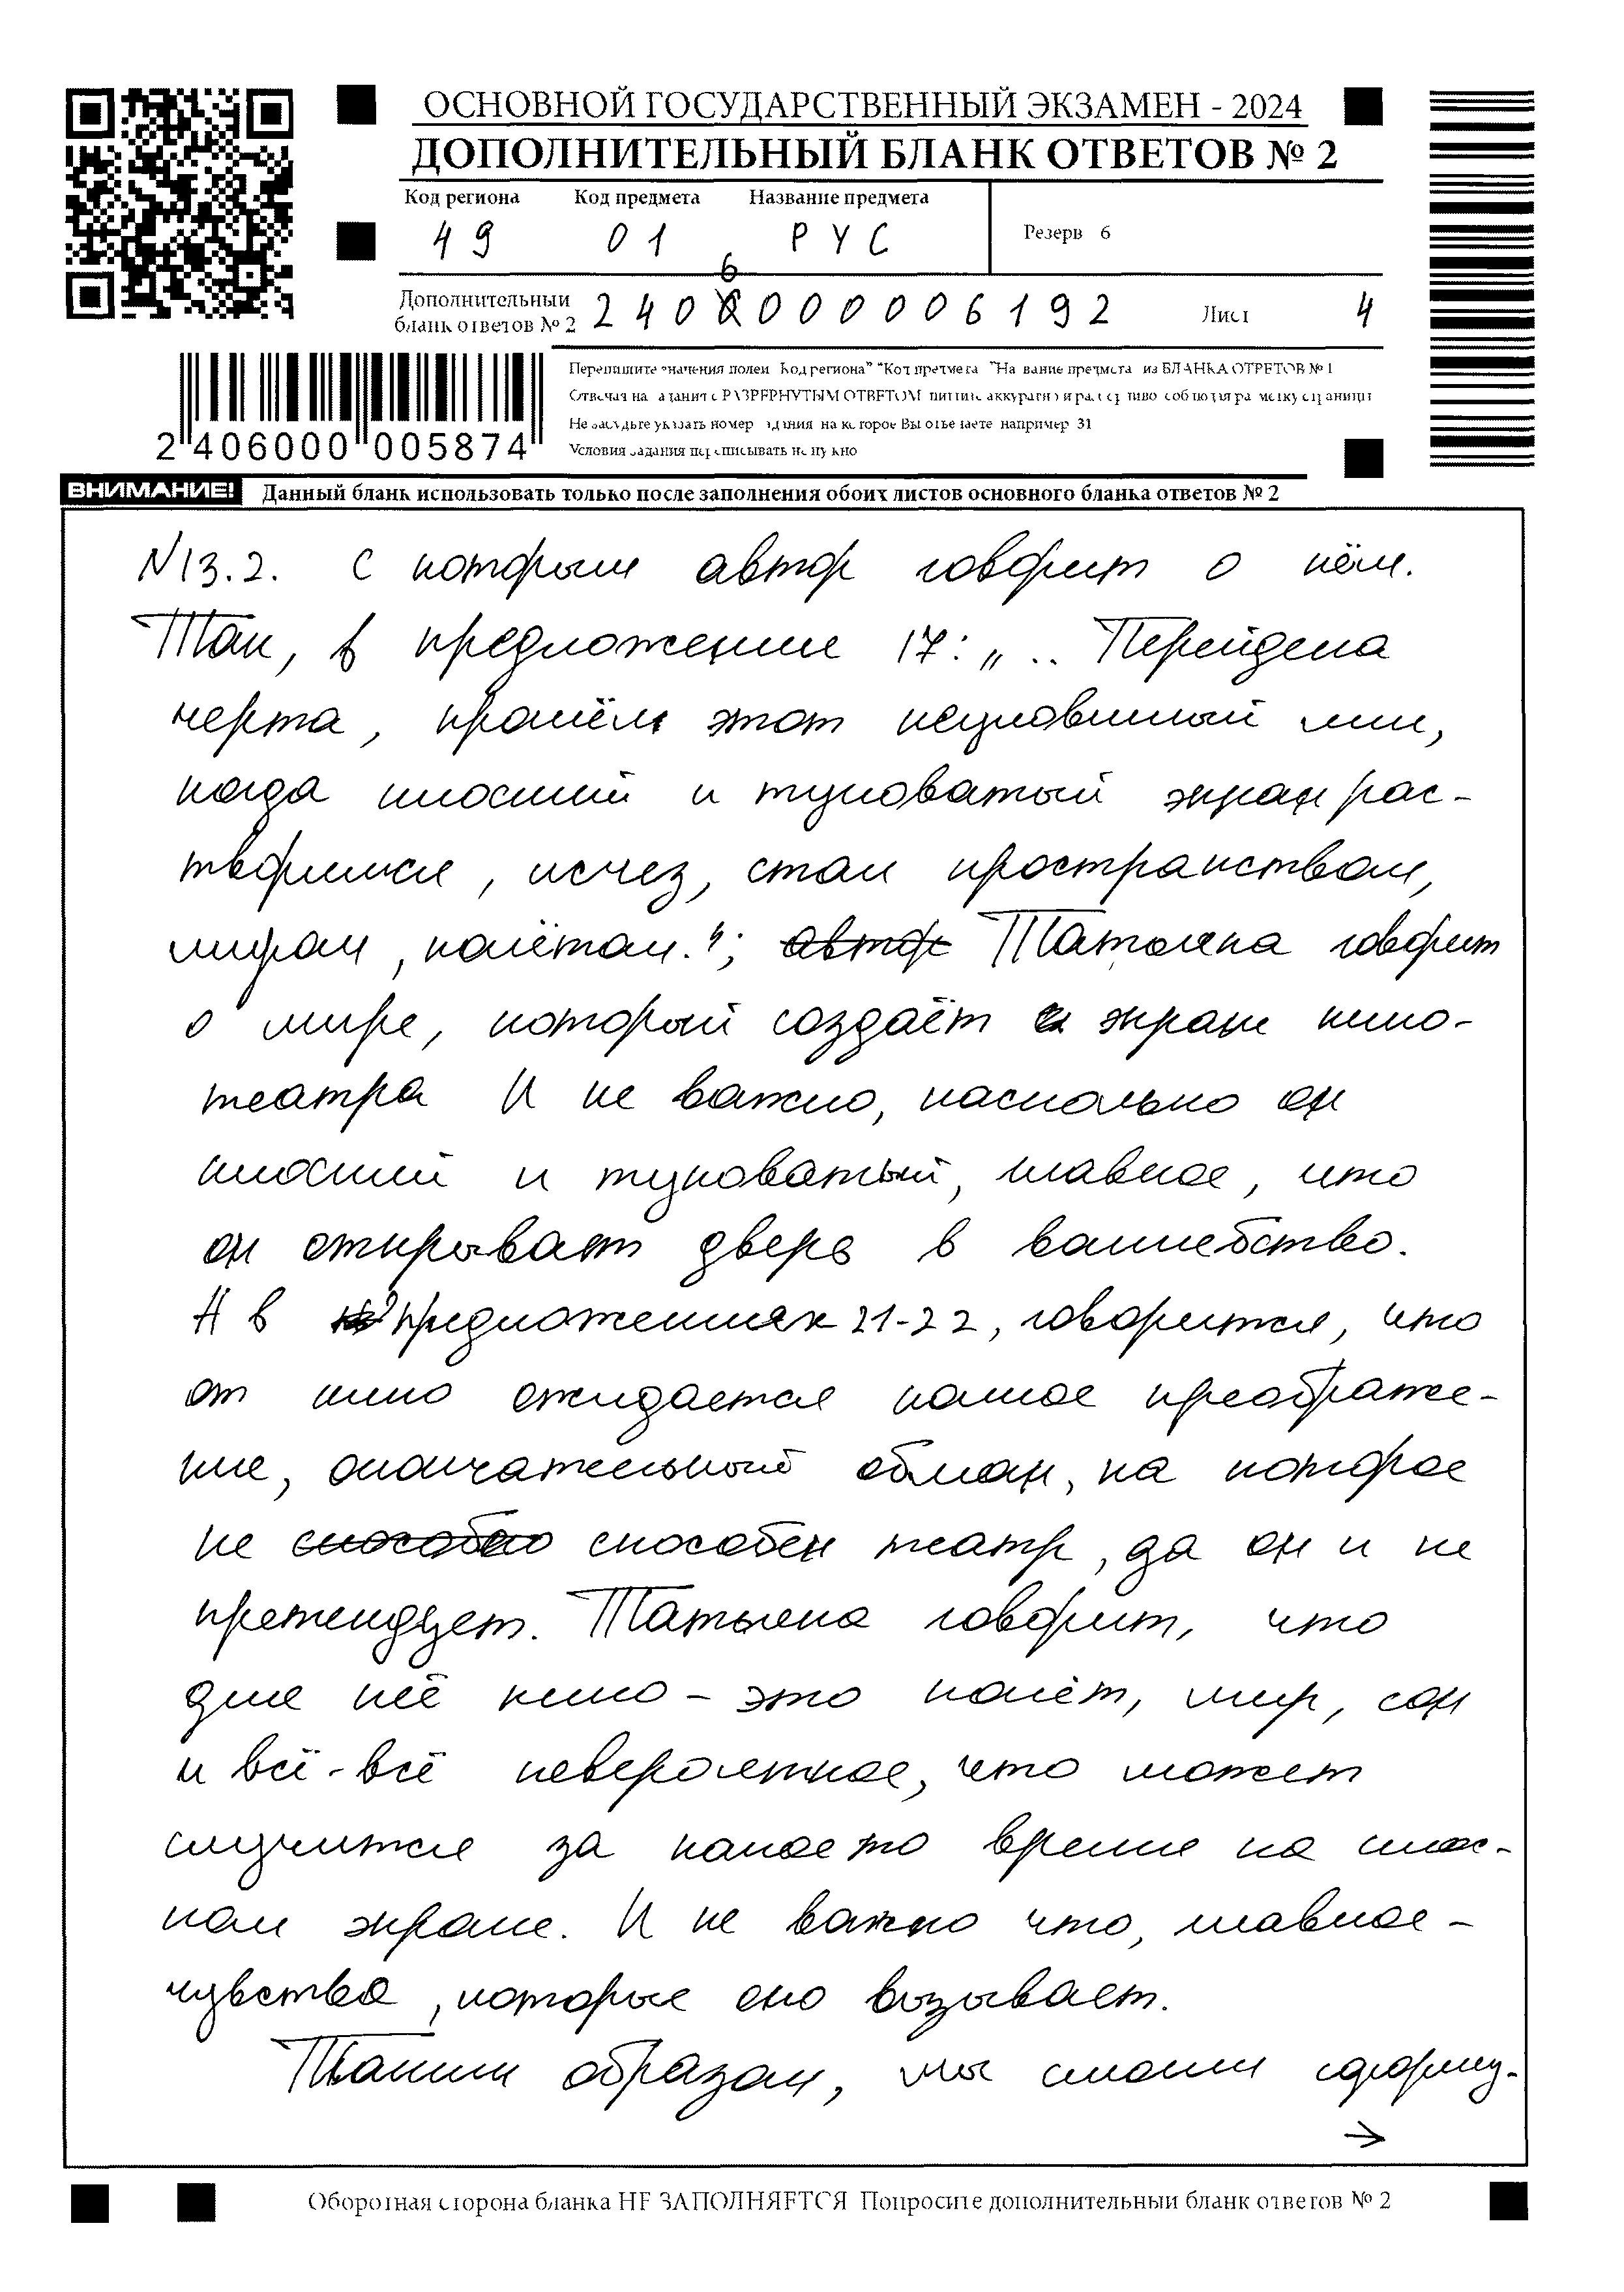 ОСНОВНОЙ ГОСУДАРСТВЕННЫЙ ЭКЗАМЕН - 2024
ДОПОЛНИТЕЛЬНЫЙ БЛАНК ОТВЕТОВ № 2
Код региона Код предмета Название предмета
49 01 РУС
Резерв 6
Дополнительный
бланк ответов № 2
6
240 000006192
Лист 4
Перепишите значения полей "Код региона" "Код предмета" "Название предмета" из БЛАНКА ОТВЕТОВ № 1
Отвечая на задания с РАЗВЕРНУТЫМ ОТВЕТОМ пишите аккуратно и разборчиво соблюдая разметку страницы
Не забудьте указать номер задания на которое Вы отвечаете например 31
Условия задания переписывать не нужно
2 406000 005874
ВНИМАНИЕ! Данный бланк использовать только после заполнения обоих листов основного бланка ответов № 2
N13.2. с которым автор говорит о нём.
Так, в предложение 17: „.. Перейдена
черта, прошёл этот неуловимый миг,
когда плоский и туповатый экран рас-
творился, исчез, стал пространством,
миром, полётом."; автор Татьяна говорит
о мире, который создаёт экран кино-
театра И не важно, насколько он
плоский и туповатый, главное, что
он открывает дверь в волшебство.
А в предложениях 21-22, говорится, что
от кино ожидается полное преображе-
ние, окончательный обман, на которое
не способно способен театр, да он и не
претендует. Татьяна говорит, что
для неё кино - это полёт, мир, сон
и всё-всё невероятное, что может
случится за какое то время на плос-
ком экране. И не важно что, главное -
чувства, которые оно вызывает.
Таким образом, мы смогли сформу-
→
Оборотная сторона бланка НЕ ЗАПОЛНЯЕТСЯ Попросите дополнительный бланк ответов № 2